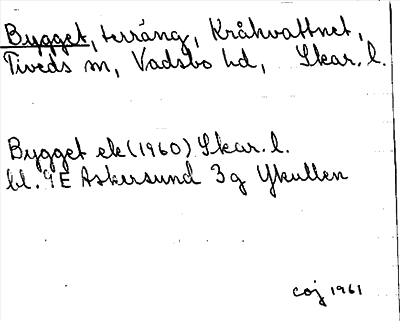 Bygget, terräng, Kråkvattnet,
Tiveds sn, Vadsbo hd, Skar. l.
Bygget ek (1960) Skar. l.
bl. 9E Askersund 3g Ykullen
coj 1961